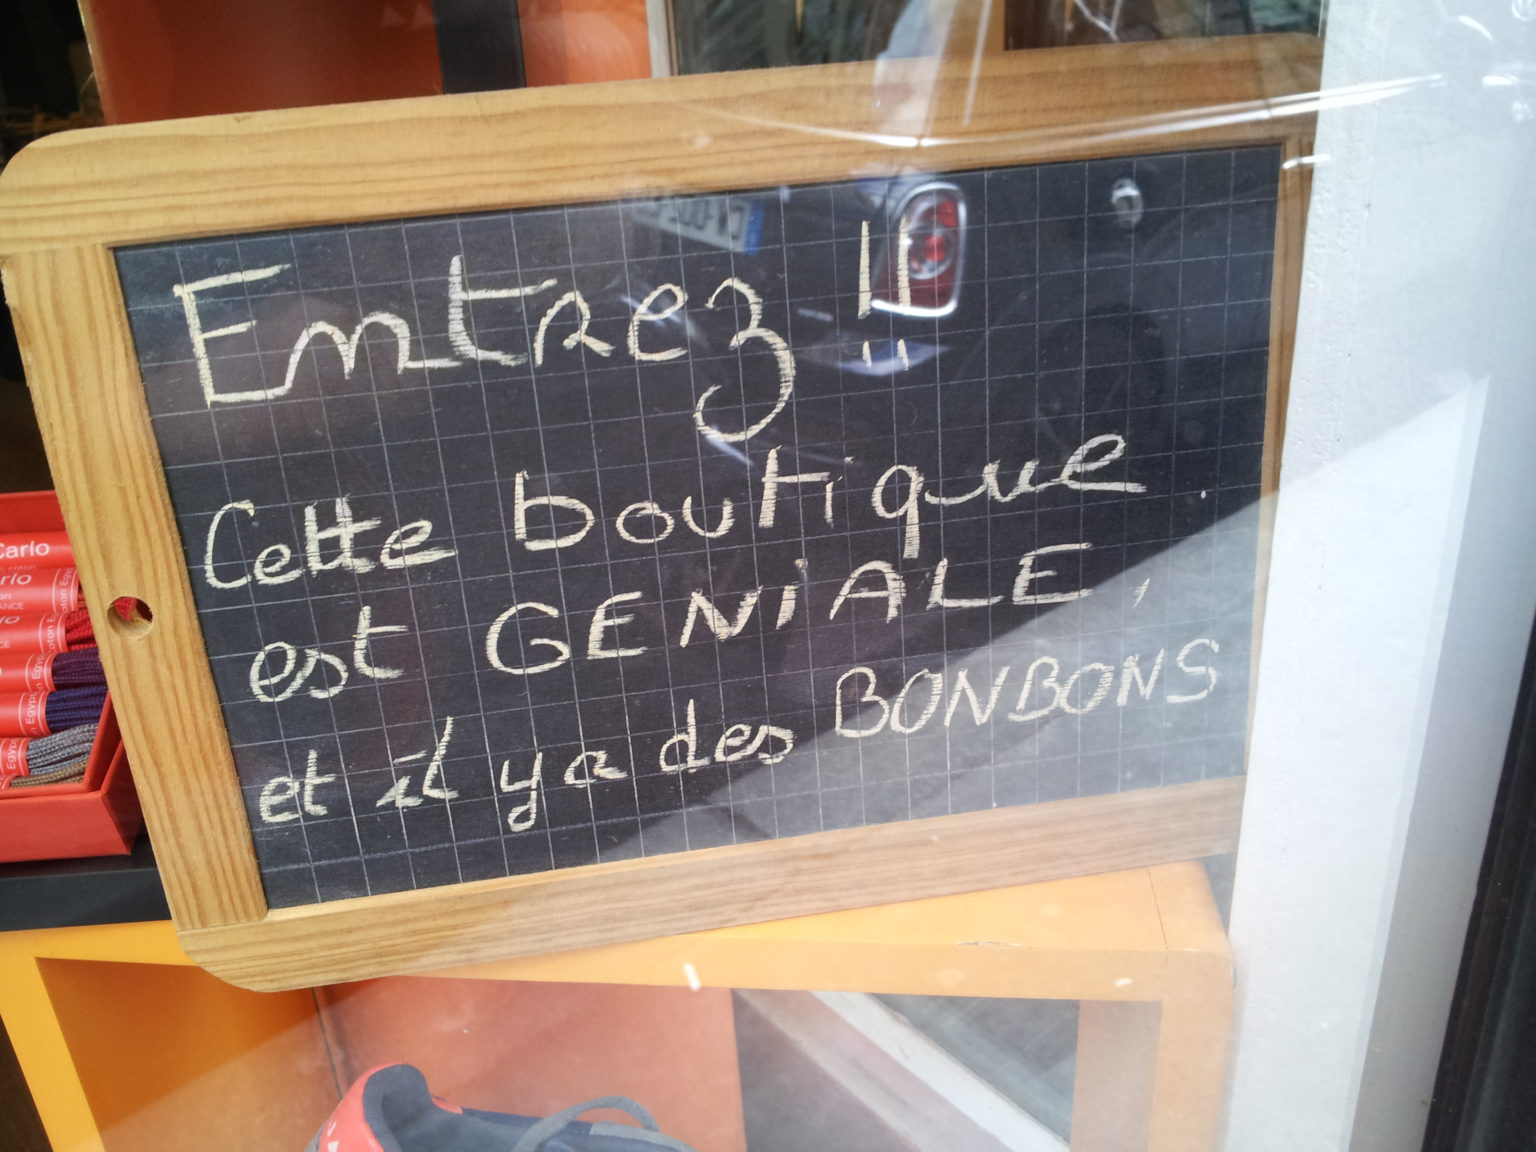 Entrez !!
Cette boutique
est GENIALE,
et il y a des BONBONS
Carlo